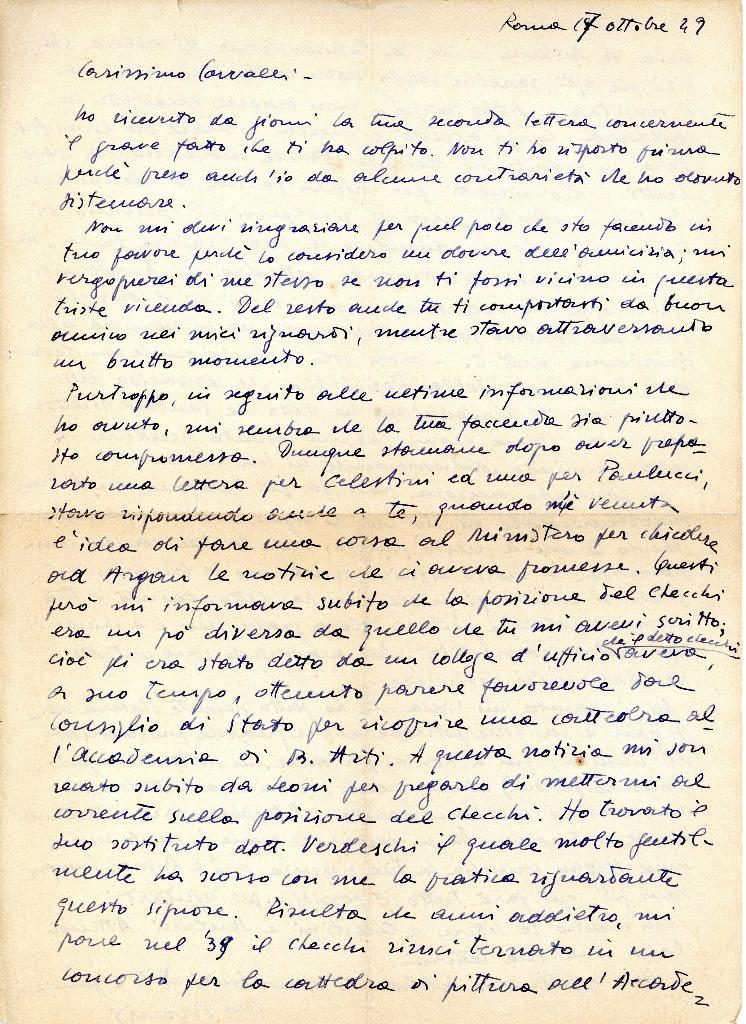 Roma 17 ottobre 49
Carissimo Corvalli -
ho ricevuto da giorni la tua seconda lettera concernente
il grave fatto che ti ha colpito. Non ti ho risposto prima
perchè preso anch'io da alcune contrarietà che ho dovuto
sistemare.
Non mi devi ringraziare per quel poco che sto facendo in
tuo favore perchè lo considero un dovere dell'amicizia; mi
vergognerei di me stesso se non ti fossi vicino in questa
triste vicenda. Del resto anche tu ti comportasti da buon
amico nei miei riguardi, mentre stavo attraversando
un brutto momento.
Purtroppo, in seguito alle ultime informazioni che
ho avuto, mi sembra che la tua faccenda sia piutto-
sto compromessa. Dunque stamane dopo aver prepa-
rato una lettera per Celestini ed una per Paulucci,
stavo rispondendo anche a te, quando m'è venuta
l'idea di fare una corsa al Ministero per chiedere
ad Argan le notizie che ci aveva promesse. Questi
però mi informava subito che la posizione del Checchi
era un pò diversa da quello che tu mi avevi scritto;
cioè gli era stato detto da un collega d'ufficio che il detto Checchi aveva,
a suo tempo, ottenuto parere favorevole dal
Consiglio di Stato per ricoprire una cattedra al-
l'Accademia di B. Arti. A questa notizia mi son
recato subito da Leoni per pregarlo di mettermi al
corrente sulla posizione del Checchi. Ho trovato il
suo sostituto dott. Verdeschi il quale molto gentil-
mente ha scorso con me la pratica riguardante
questo signore. Risulta che anni addietro, mi
pare nel '39 il Checchi riuscì ternato in un
concorso per la cattedra di pittura all'Accade=